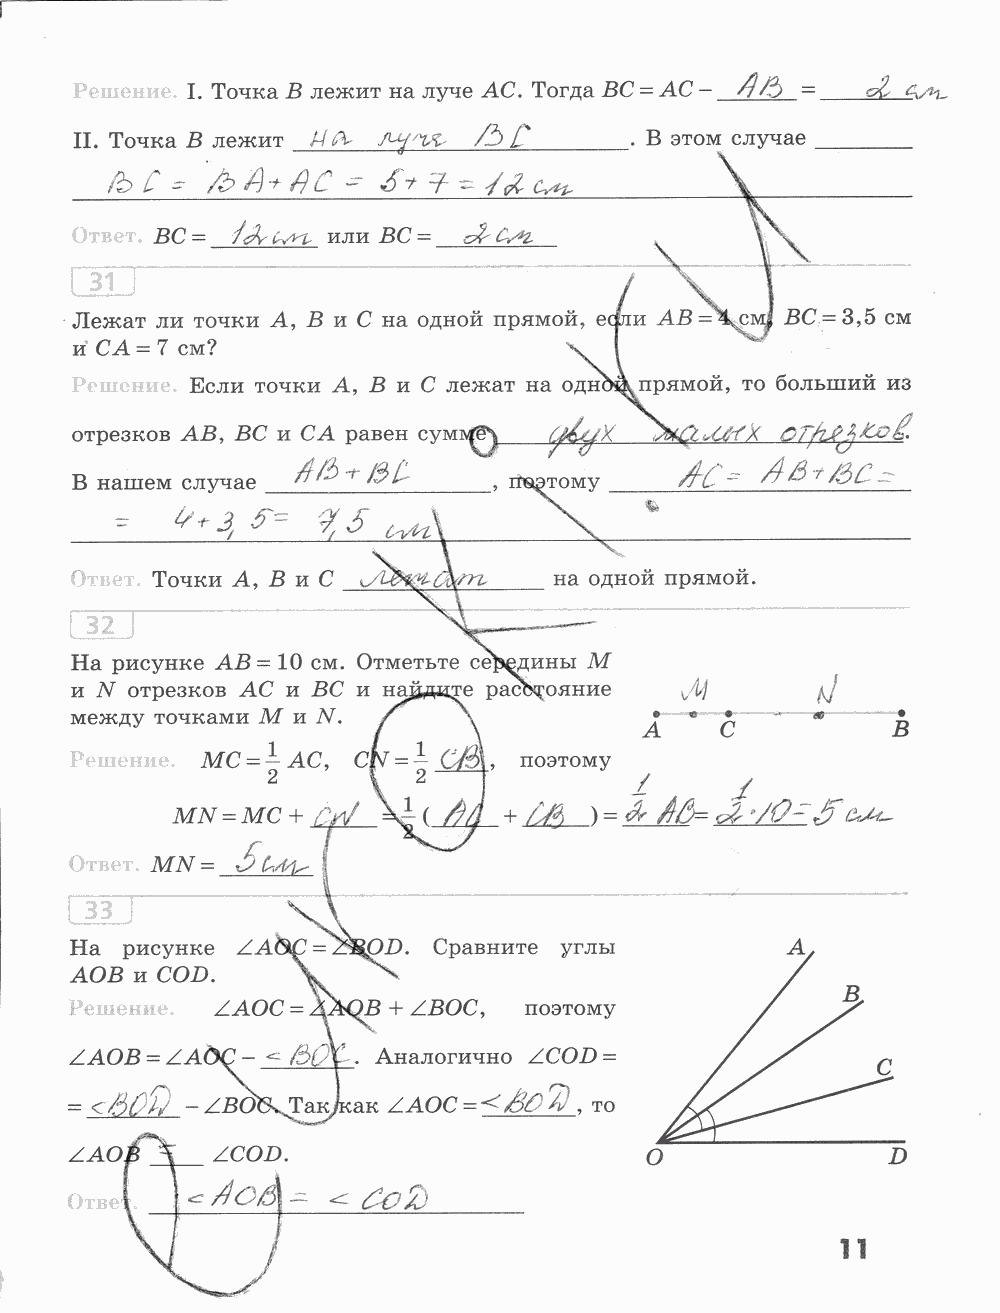 Решение. I. Точка B лежит на луче AC. Тогда BC = AC − AB = 2 см
II. Точка B лежит на луче BC. В этом случае
BC = BA + AC = 5 + 7 = 12 см
Ответ. BC = 12 см или BC = 2 см
31
Лежат ли точки A, B и C на одной прямой, если AB = 4 см, BC = 3,5 см
и CA = 7 см?
Решение. Если точки A, B и C лежат на одной прямой, то больший из
отрезков AB, BC и CA равен сумме двух малых отрезков.
В нашем случае AB + BC, поэтому AC = AB + BC =
= 4 + 3,5 = 7,5 см
Ответ. Точки A, B и C лежат на одной прямой.
32
На рисунке AB = 10 см. Отметьте середины M
и N отрезков AC и BC и найдите расстояние
между точками M и N.
M N
A C B
Решение. MC = 1/2 AC, CN = 1/2 CB, поэтому
MN = MC + CN = 1/2 (AC + CB) = 1/2 AB = 1/2 · 10 = 5 см
Ответ. MN = 5 см
33
На рисунке ∠AOC = ∠BOD. Сравните углы
AOB и COD.
Решение. ∠AOC = ∠AOB + ∠BOC, поэтому
∠AOB = ∠AOC − <BOC. Аналогично ∠COD =
= <BOD − ∠BOC. Так как ∠AOC = <BOD, то
∠AOB = ∠COD.
Ответ. <AOB = <COD
A
B
C
O D
11